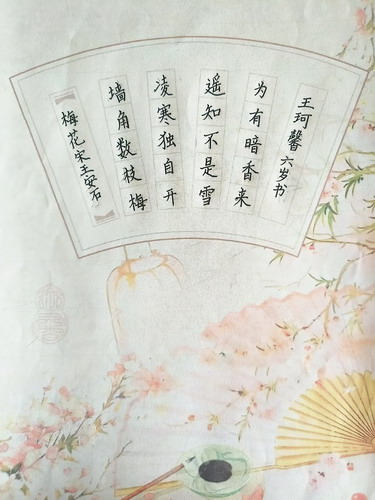 梅花 宋 王安石
墙角数枝梅
凌寒独自开
遥知不是雪
为有暗香来
王珂馨 六岁书